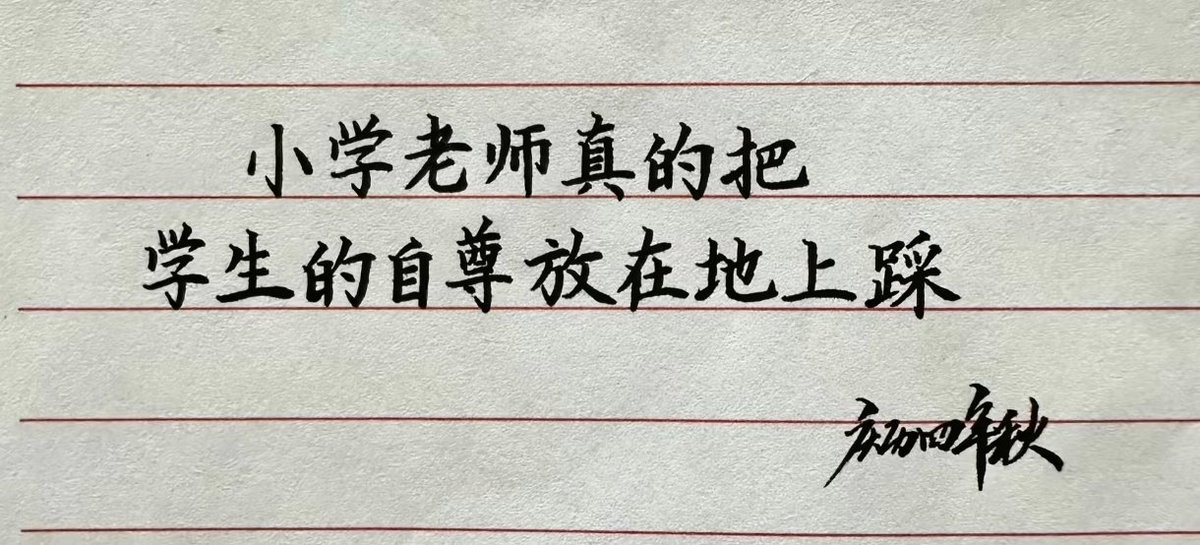 小学老师真的把
学生的自尊放在地上踩
庆历四年秋